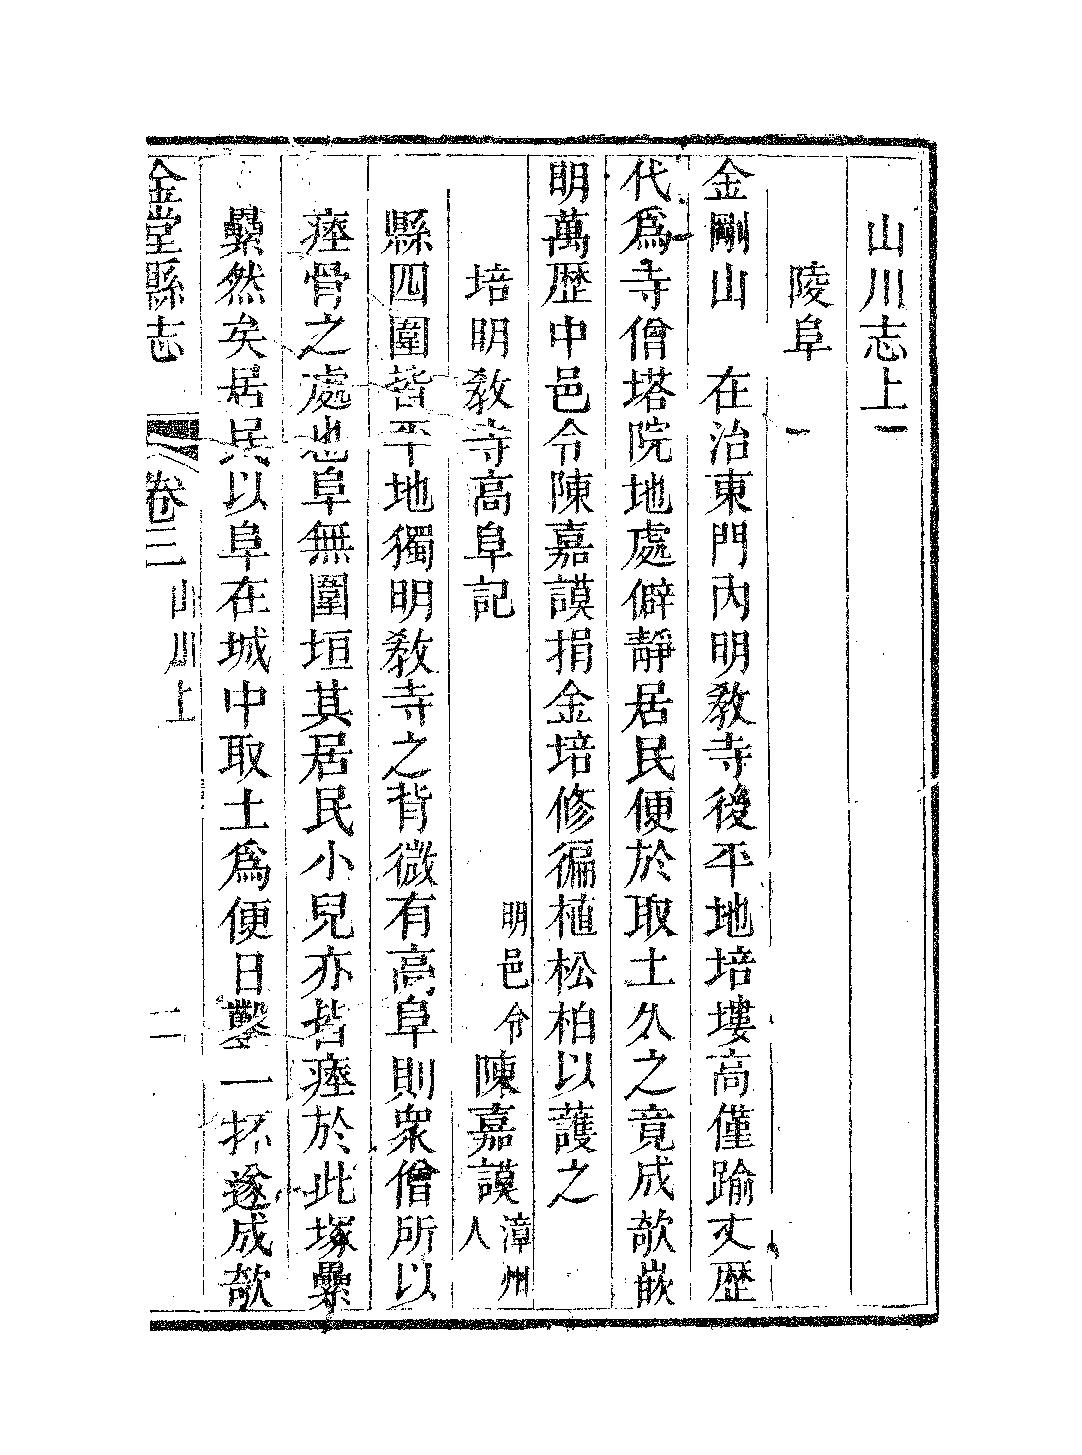 山川志上一
陵阜　一
金剛山　在治東門內明教寺後平地培塿高僅踰丈歷
代爲寺僧塔院地處僻靜居民便於取土久之竟成欹嵌
明萬歷中邑令陳嘉謨捐金培修徧植松柏以護之
培明教寺高阜記　明邑令陳嘉謨漳州人
縣四圍皆平地獨明教寺之背微有高阜則衆僧所以
瘞骨之處也阜無圍垣其居民小兒亦皆瘞於此塚纍
纍然矣居民以阜在城中取土爲便日鑿一抔遂成欹
金堂縣志　卷三　山川上　二